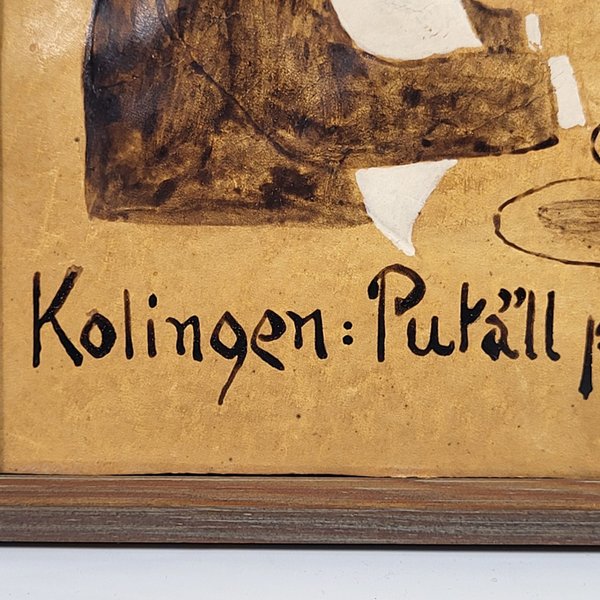 Kolingen: Putäll